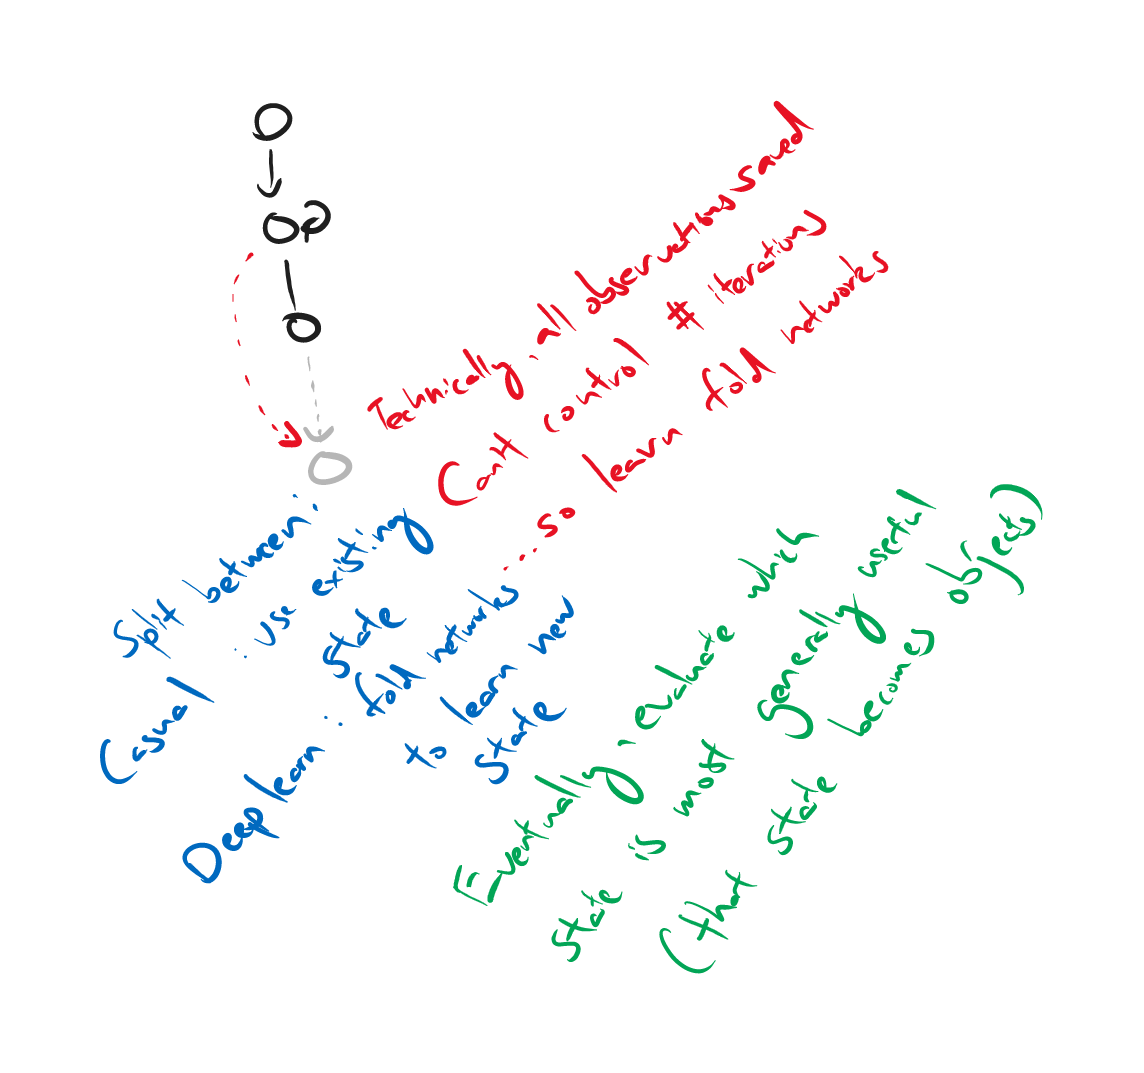 Technically, all observations saved
Can't control # iterations
... so learn fold networks
Split between:
Casual : use existing
state
Deep learn : fold networks
to learn new
state
Eventually, evaluate which
state is most generally useful
(that state becomes objects)